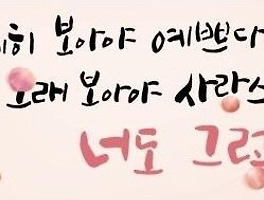 히 보아야 예쁘다
오래 보아야 사랑스
너도 그렇